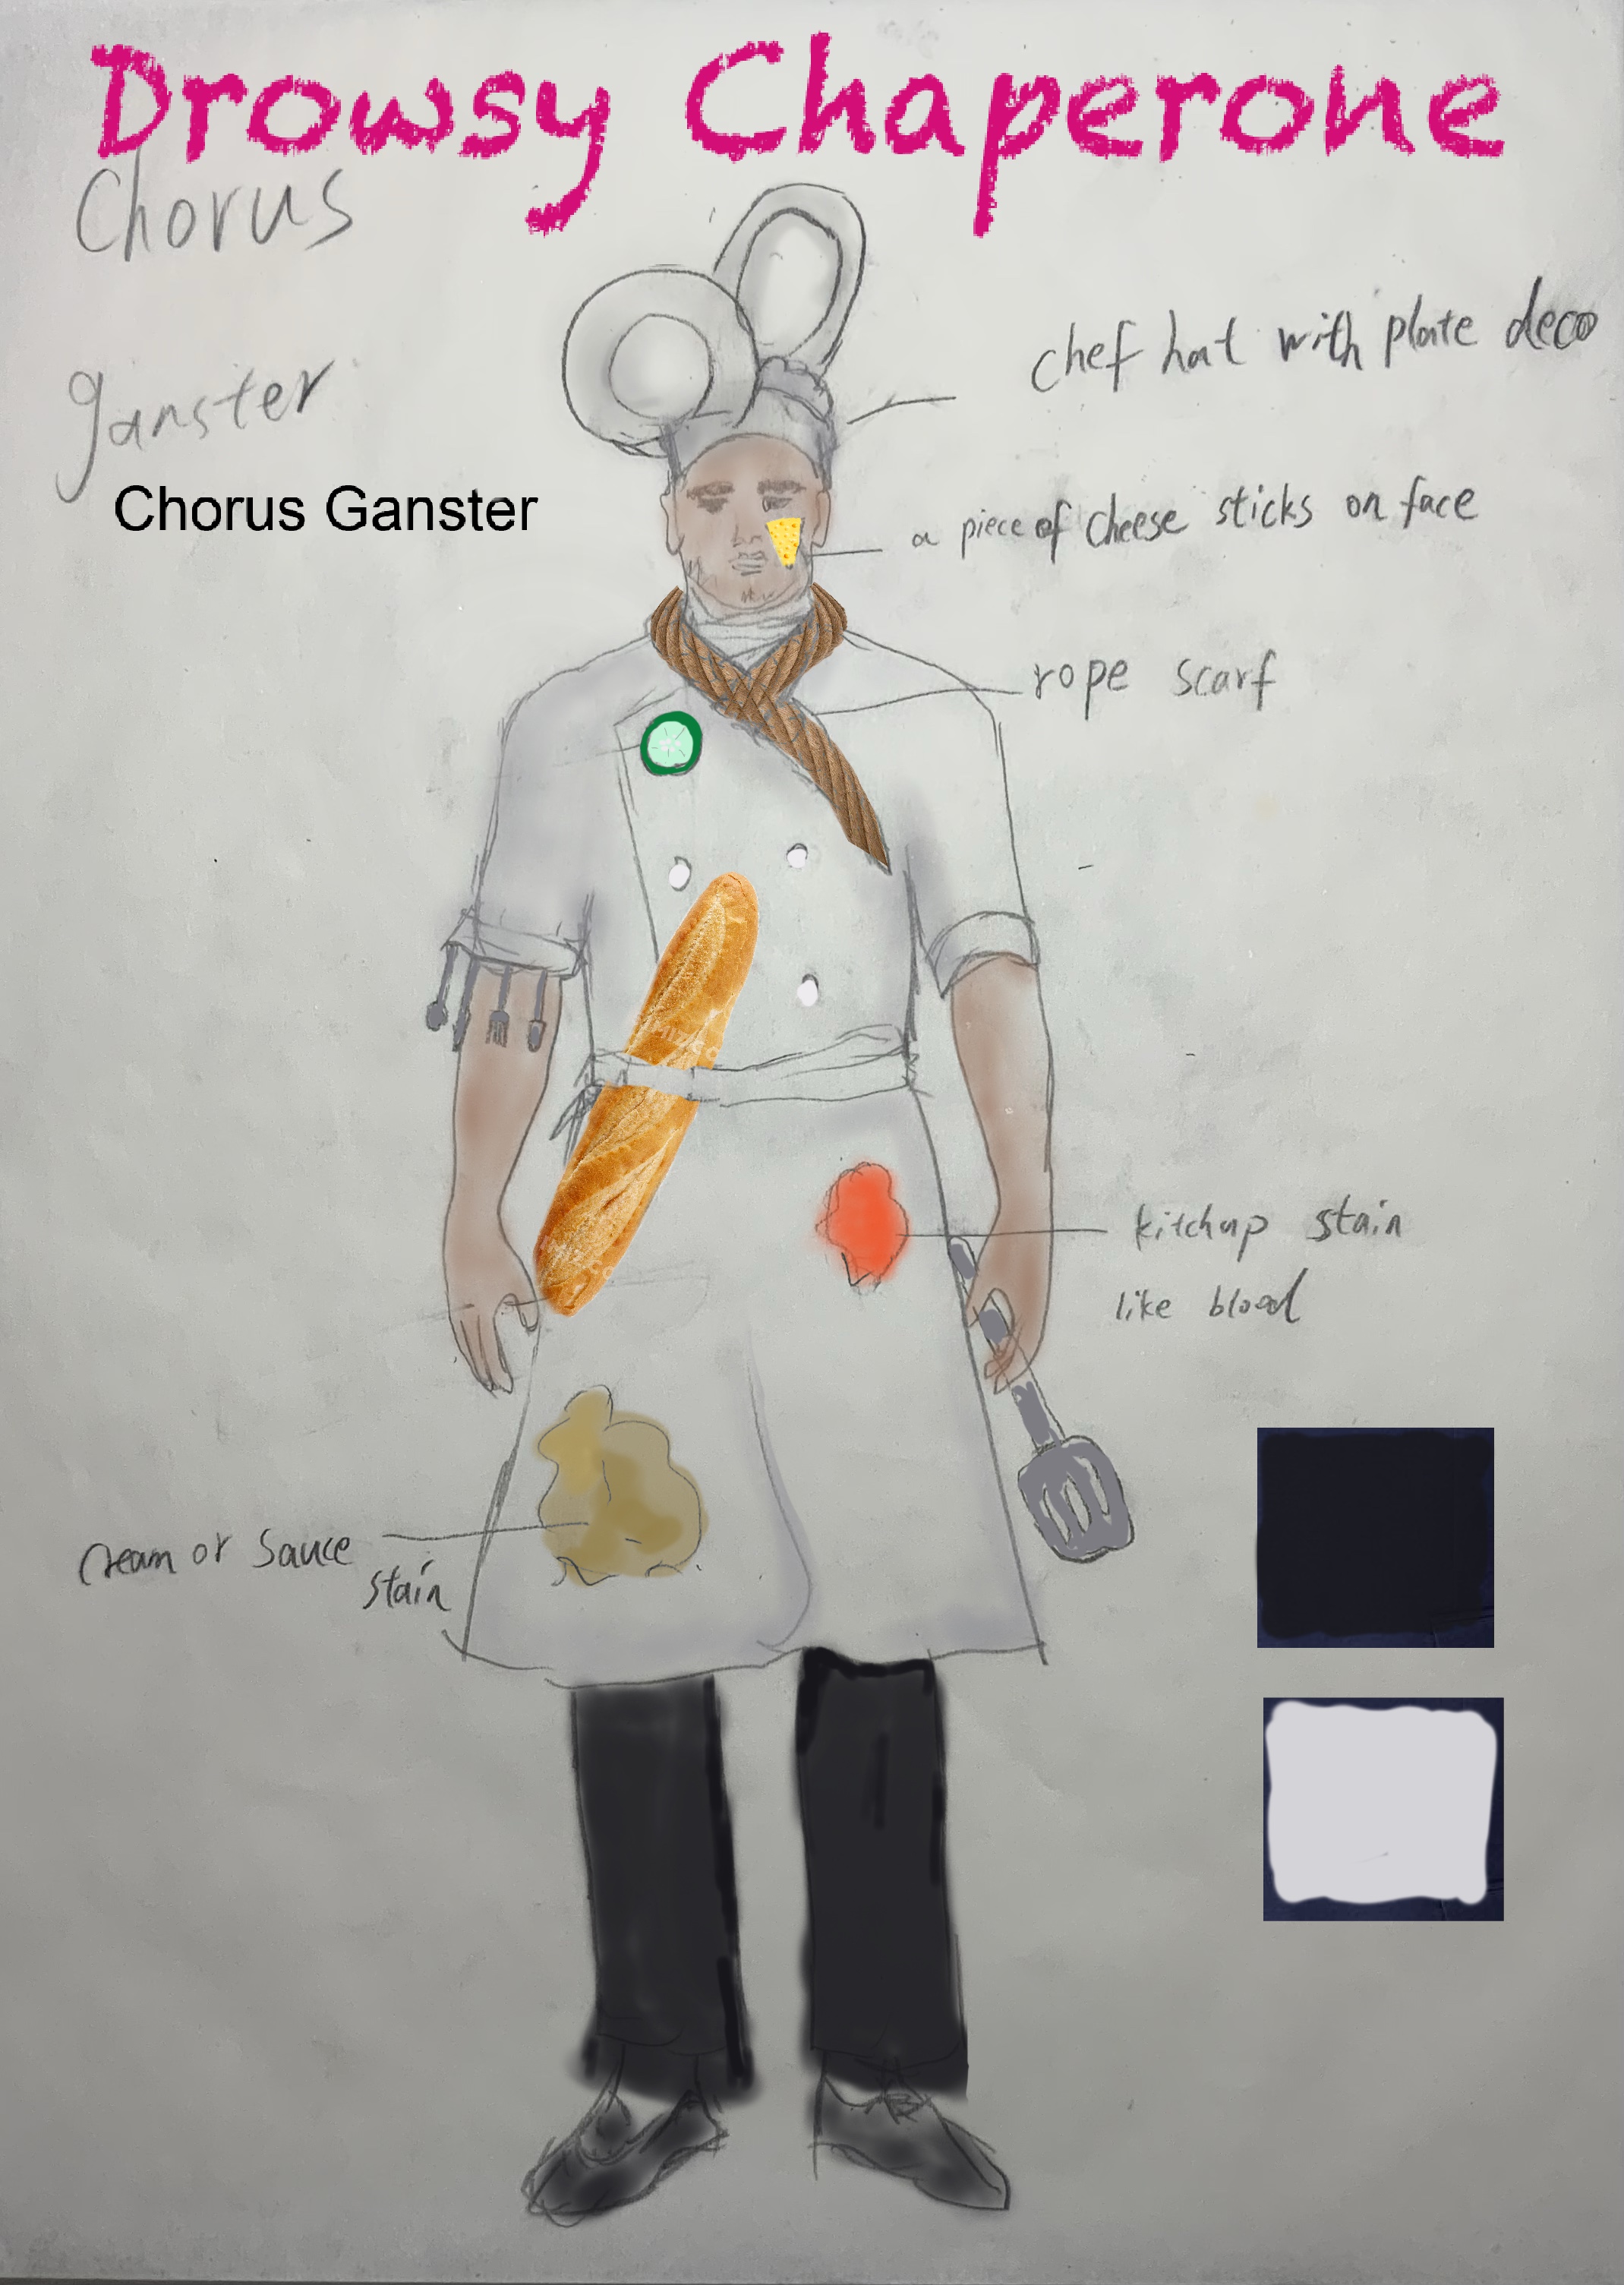 Drowsy Chaperone
Chorus
ganster
Chorus Ganster
chef hat with plate deco
a piece of cheese sticks on face
rope scarf
kitchup stain
like blood
cream or sauce
stain